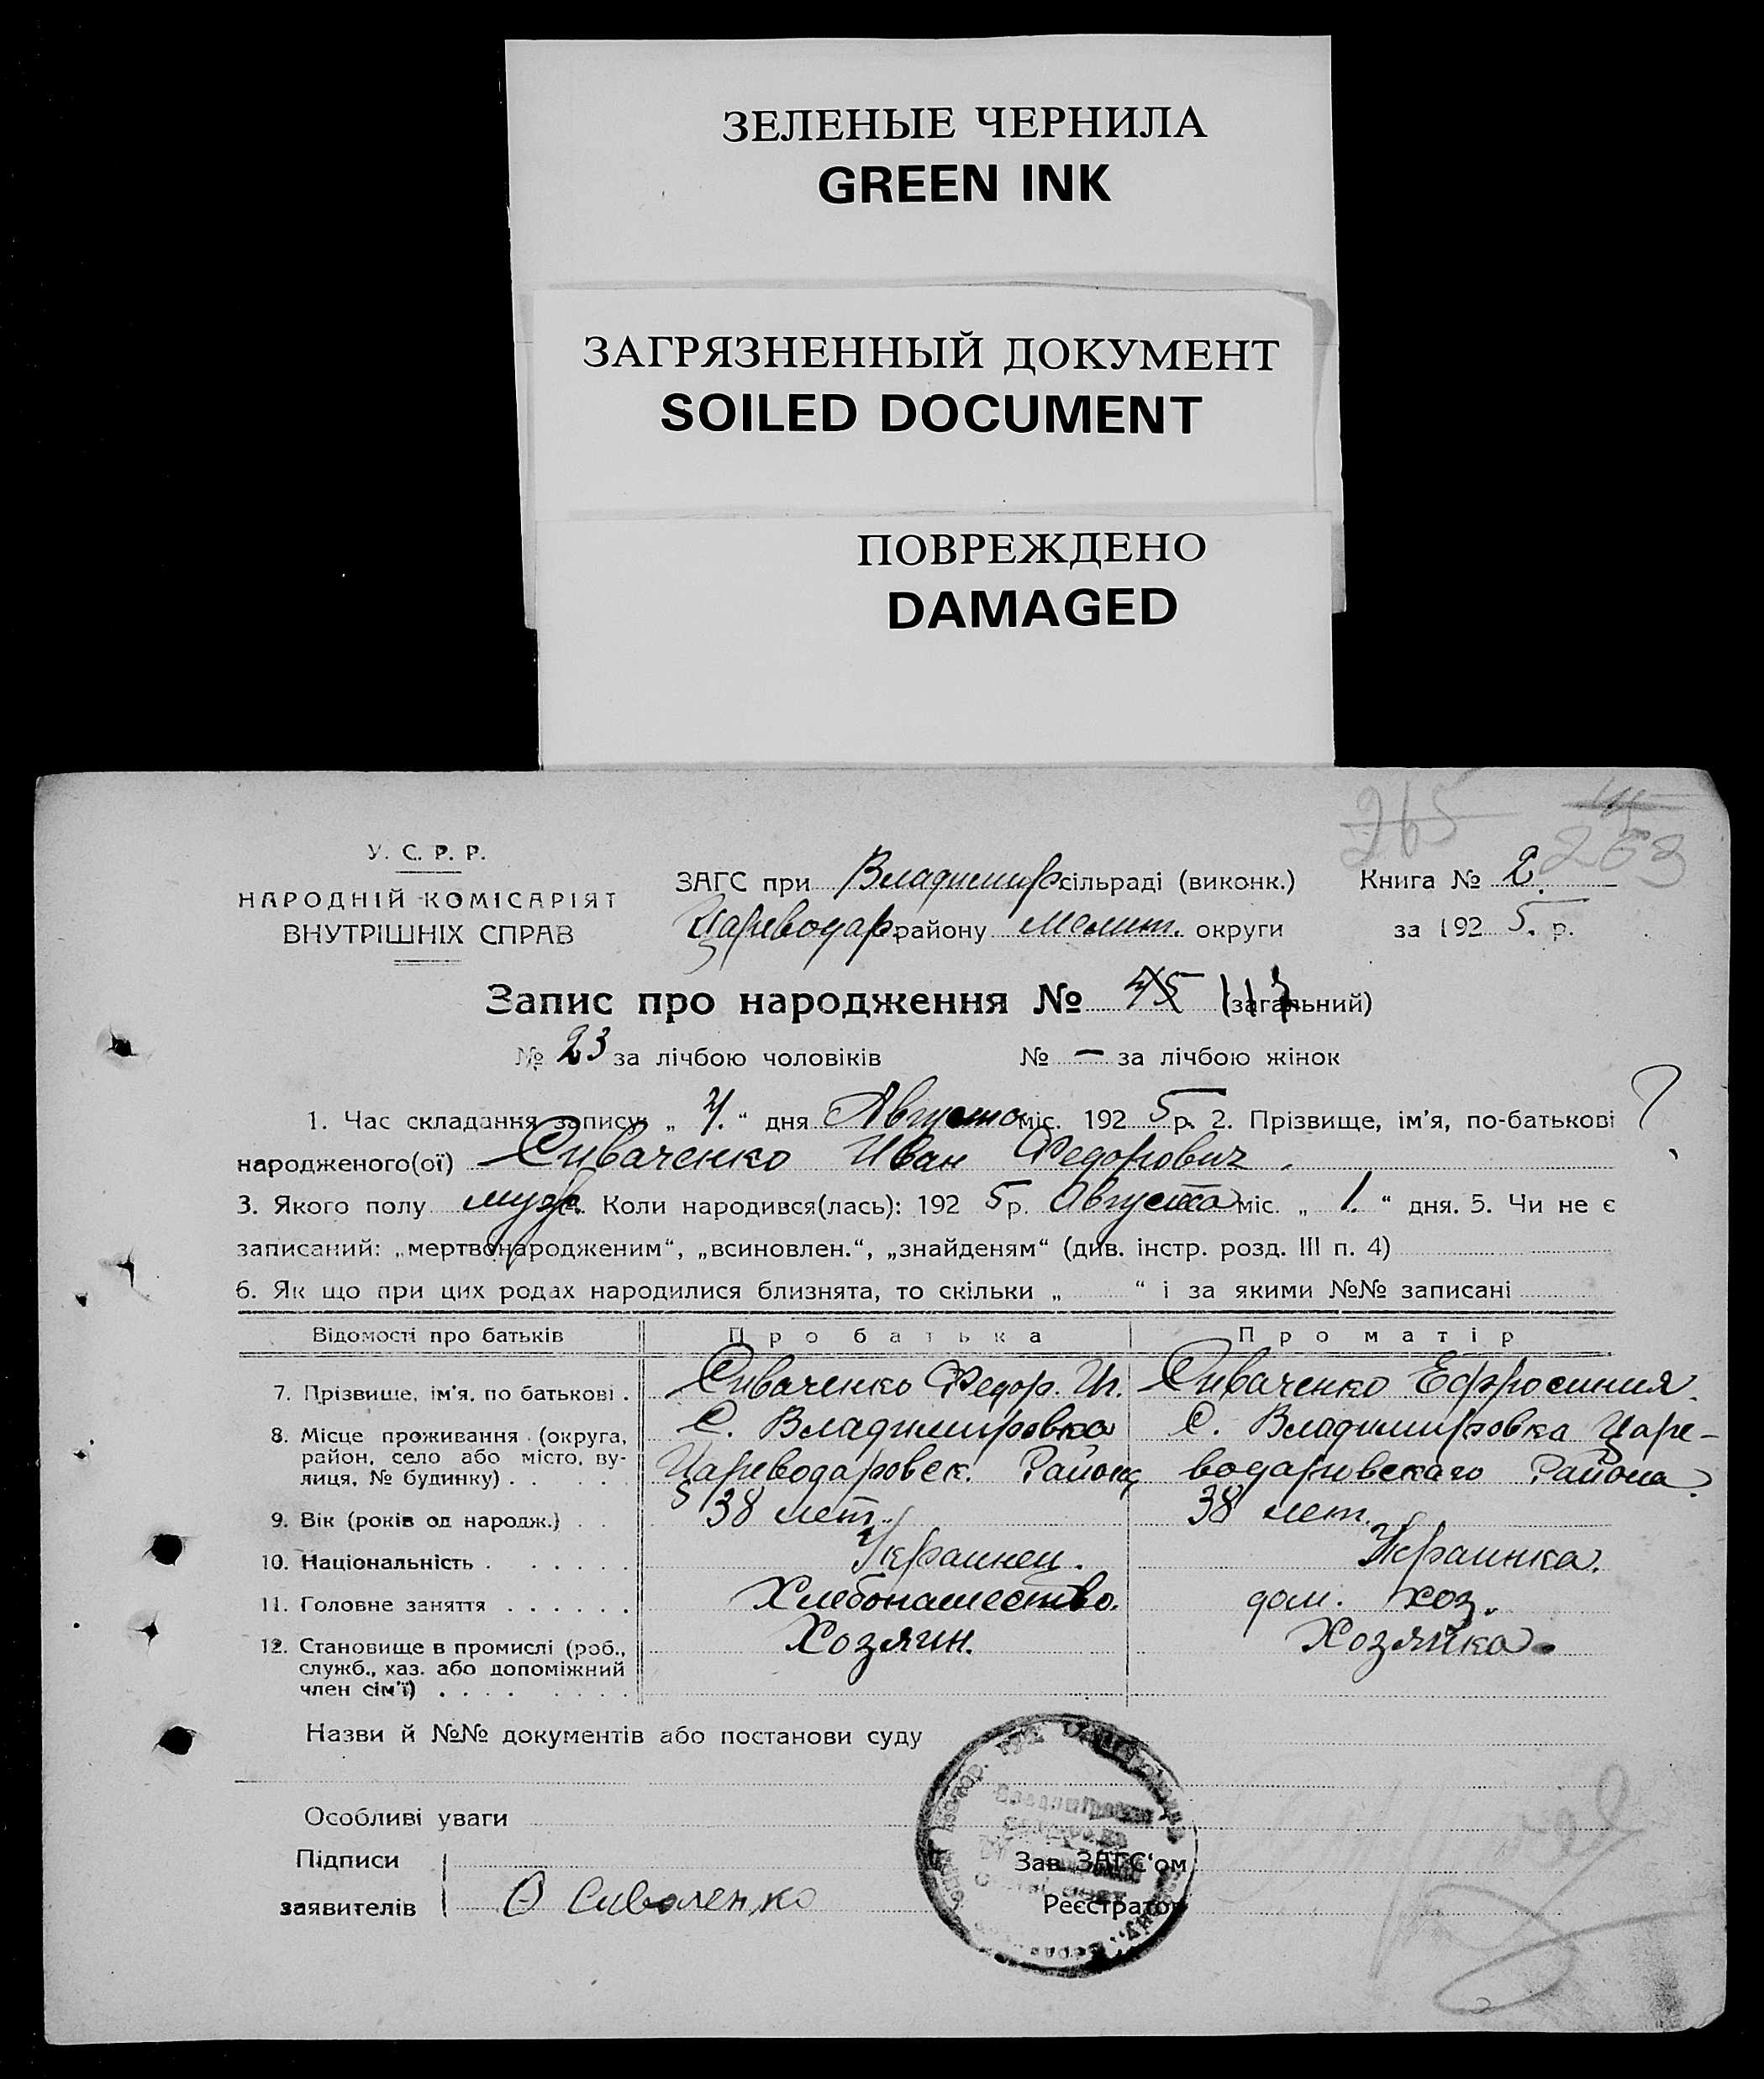 ЗЕЛЕНЫЕ ЧЕРНИЛА
GREEN INK
ЗАГРЯЗНЕННЫЙ ДОКУМЕНТ
SOILED DOCUMENT
ПОВРЕЖДЕНО
DAMAGED
265
253
У. С. Р. Р.
НАРОДНІЙ КОМІСАРІЯТ
ВНУТРІШНІХ СПРАВ
ЗАГС при Владимир. сільраді (виконк.) Книга № 2.
Цареводар. району Мелит. округи за 192 5. р.
Запис про народження № 45 113 (загальний)
№ 23 за лічбою чоловіків № — за лічбою жінок
1. Час складання запису: „ 4. “ дня Августа міс. 192 5 р. 2. Прізвище, ім’я, по-батькові ?
народженого(ої) Сиваченко Иван Федорович.
3. Якого полу муж. Коли народився(лась): 192 5 р. Августа міс. „ 1. “ дня. 5. Чи не є
записаний: „мертвонародженим“, „всиновлен.“, „знайденям“ (див. інстр. розд. III п. 4)
6. Як що при цих родах народилися близнята, то скільки „ “ і за якими №№ записані
Відомості про батьків Про батька Про матір
7. Прізвище, ім’я, по батькові . Сиваченко Федор. Ив. Сиваченко Ефросиния.
8. Місце проживання (округа, район, село або місто, вулиця, № будинку) . С. Владимировка С. Владимировка Царе-
Цареводаровск. Района водаровскаго Района.
9. Вік (років од народж.) . . 38 лет. 38 лет.
10. Національність . . . . . . Украинец. Украинка.
11. Головне заняття . . . . . . Хлебопашество. дом. хоз.
12. Становище в промислі (роб., Хозяин. Хозяйка.
служб., хаз. або допоміжний
член сім’ї) . . . .
Назви й №№ документів або постанови суду
Особливі уваги
Підписи Зав. ЗАГС‘ом
заявителів Сиваченко Реєстратор